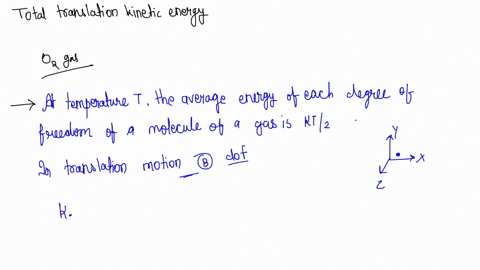 Total translation kinetic energy
O₂ gas
→ At temperature T, the average energy of each degree of
freedom of a molecule of a gas is KT/2
In translation motion ③ dof
Y
X
Z
K.